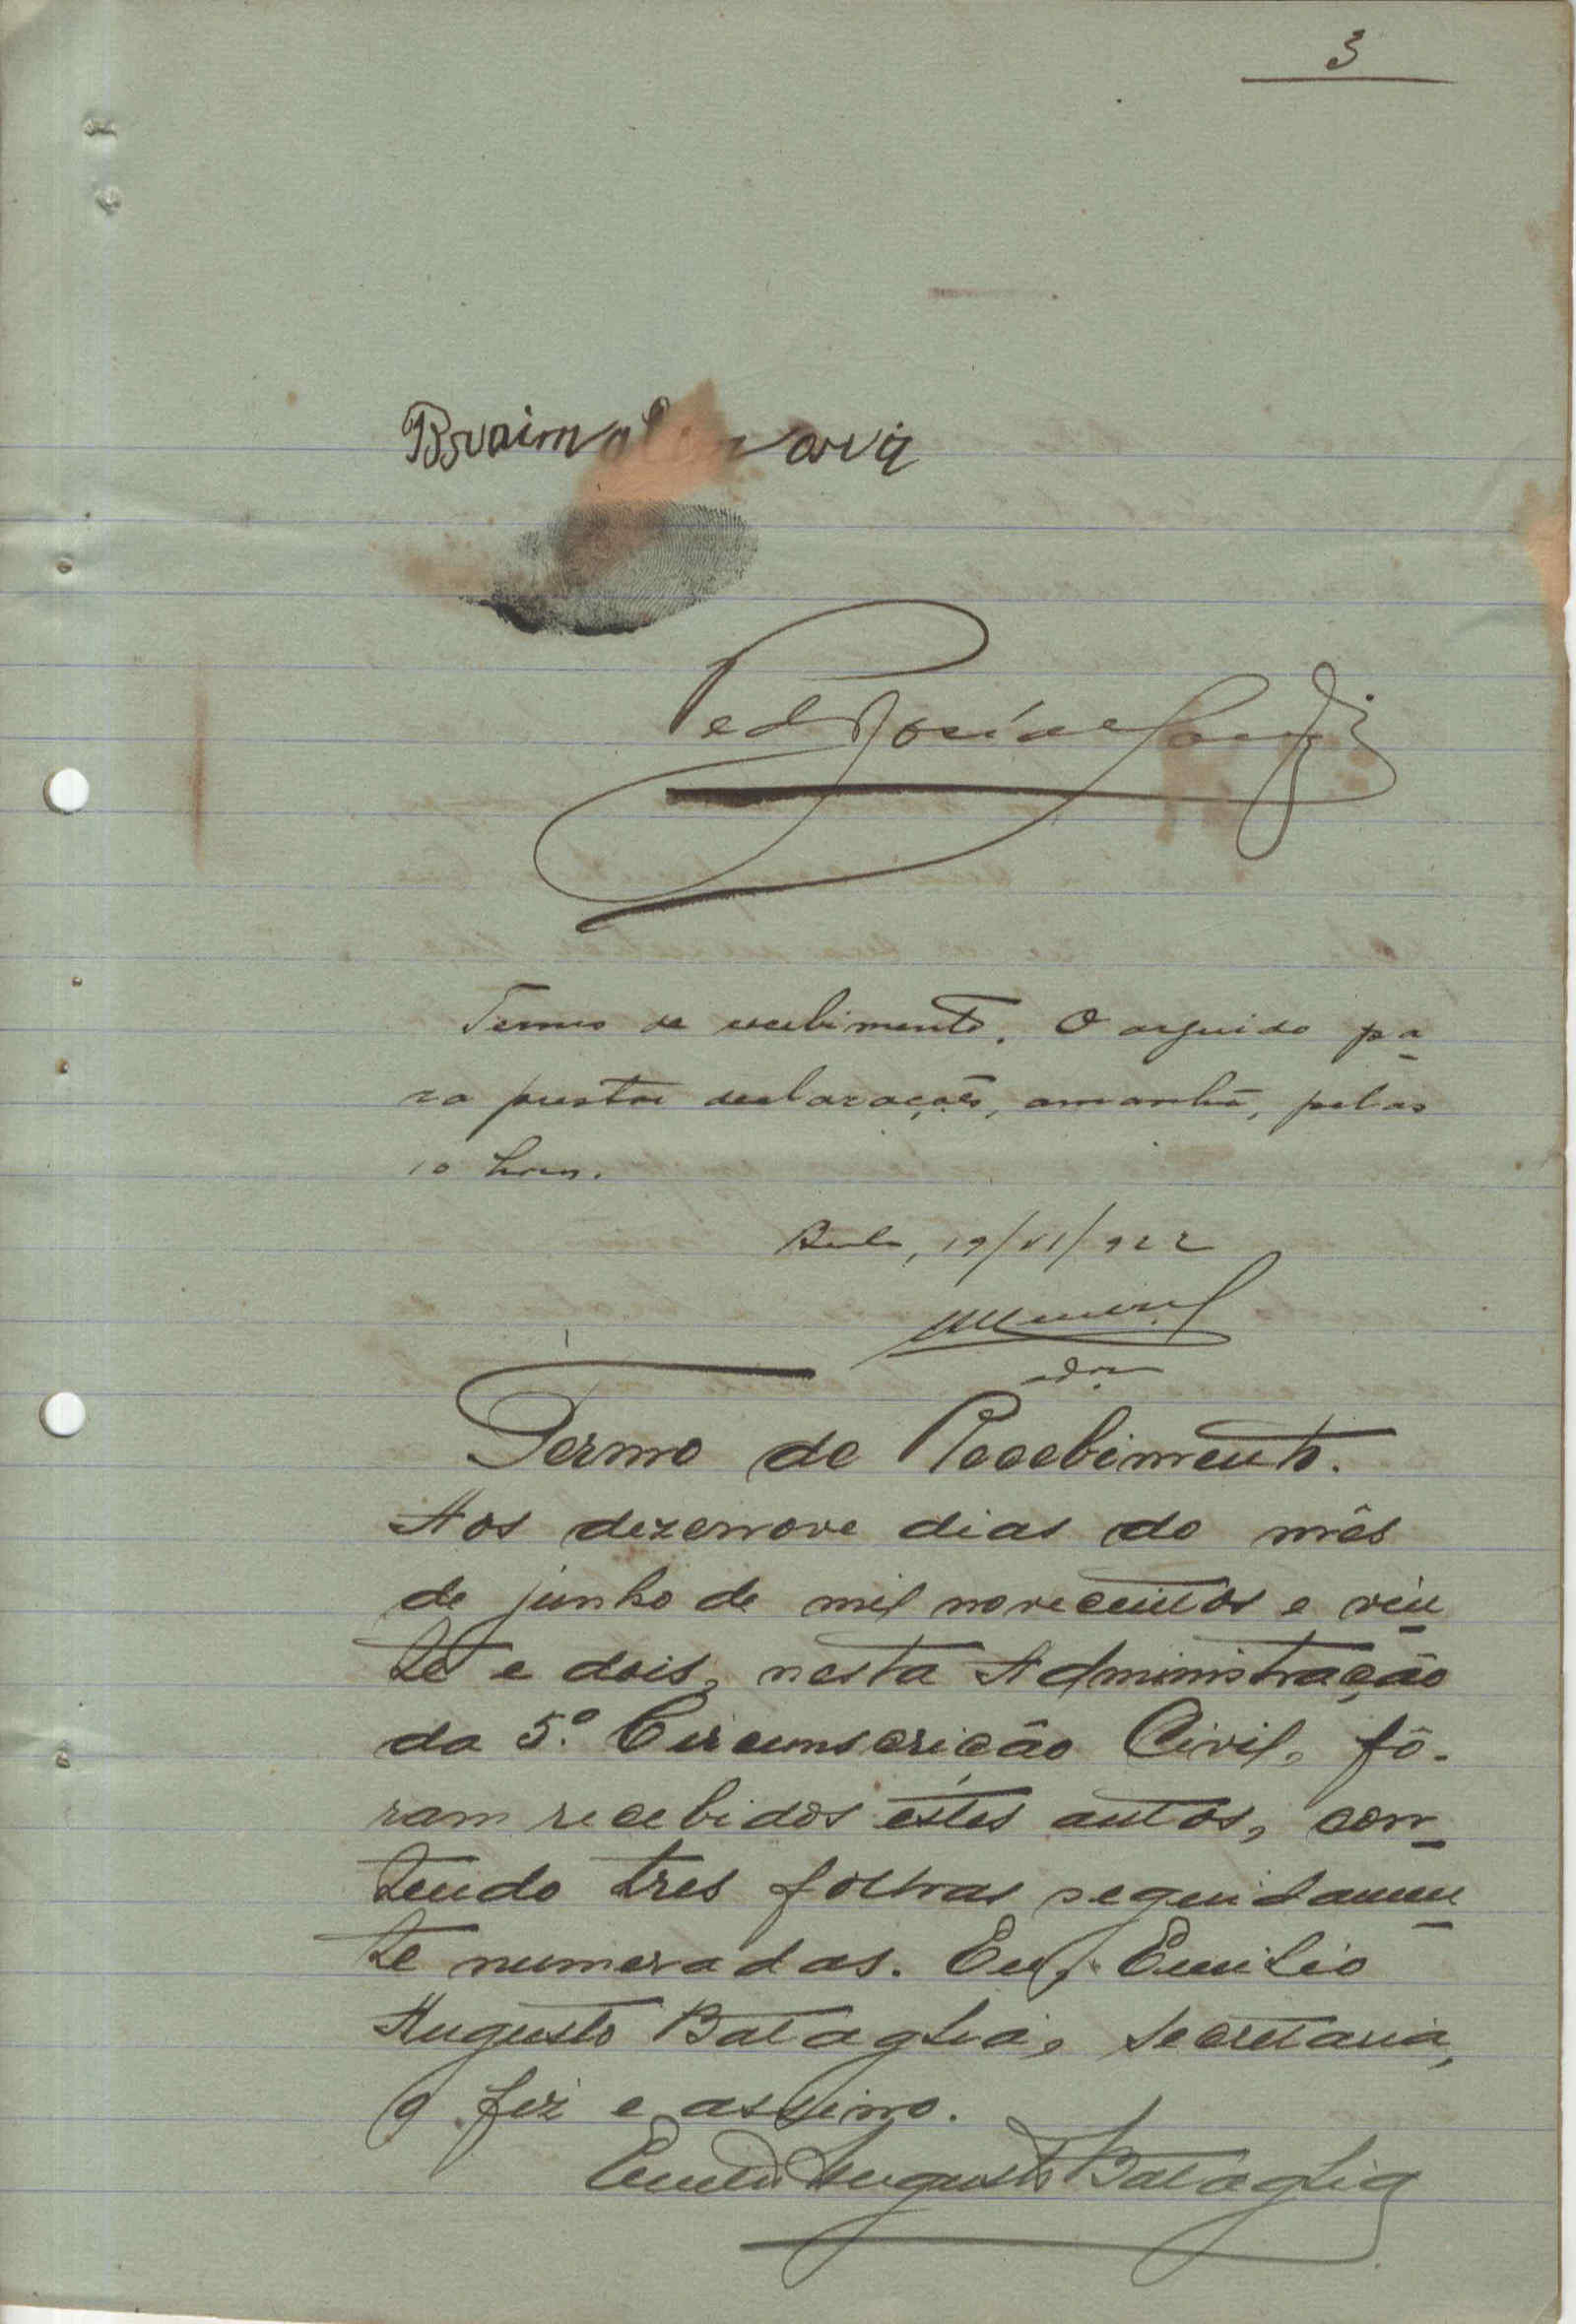 3
Termo de recebimento. O arguido pa
ra prestar declarações, amanhã, pelas
10 horas.
19/VI/922
ador
Termo de Recebimento.
Aos dezenove dias do mês
de junho de mil novecentos e vin
te e dois, nesta Administração
da 5.ª Circunscrição Civil, fô-
ram recebidos êstes autos, con
tendo tres folhas seguidamen
te numeradas. Eu, Emilio
Augusto Bataglia, secretario,
o fiz e assino.
Emilio Augusto Bataglia